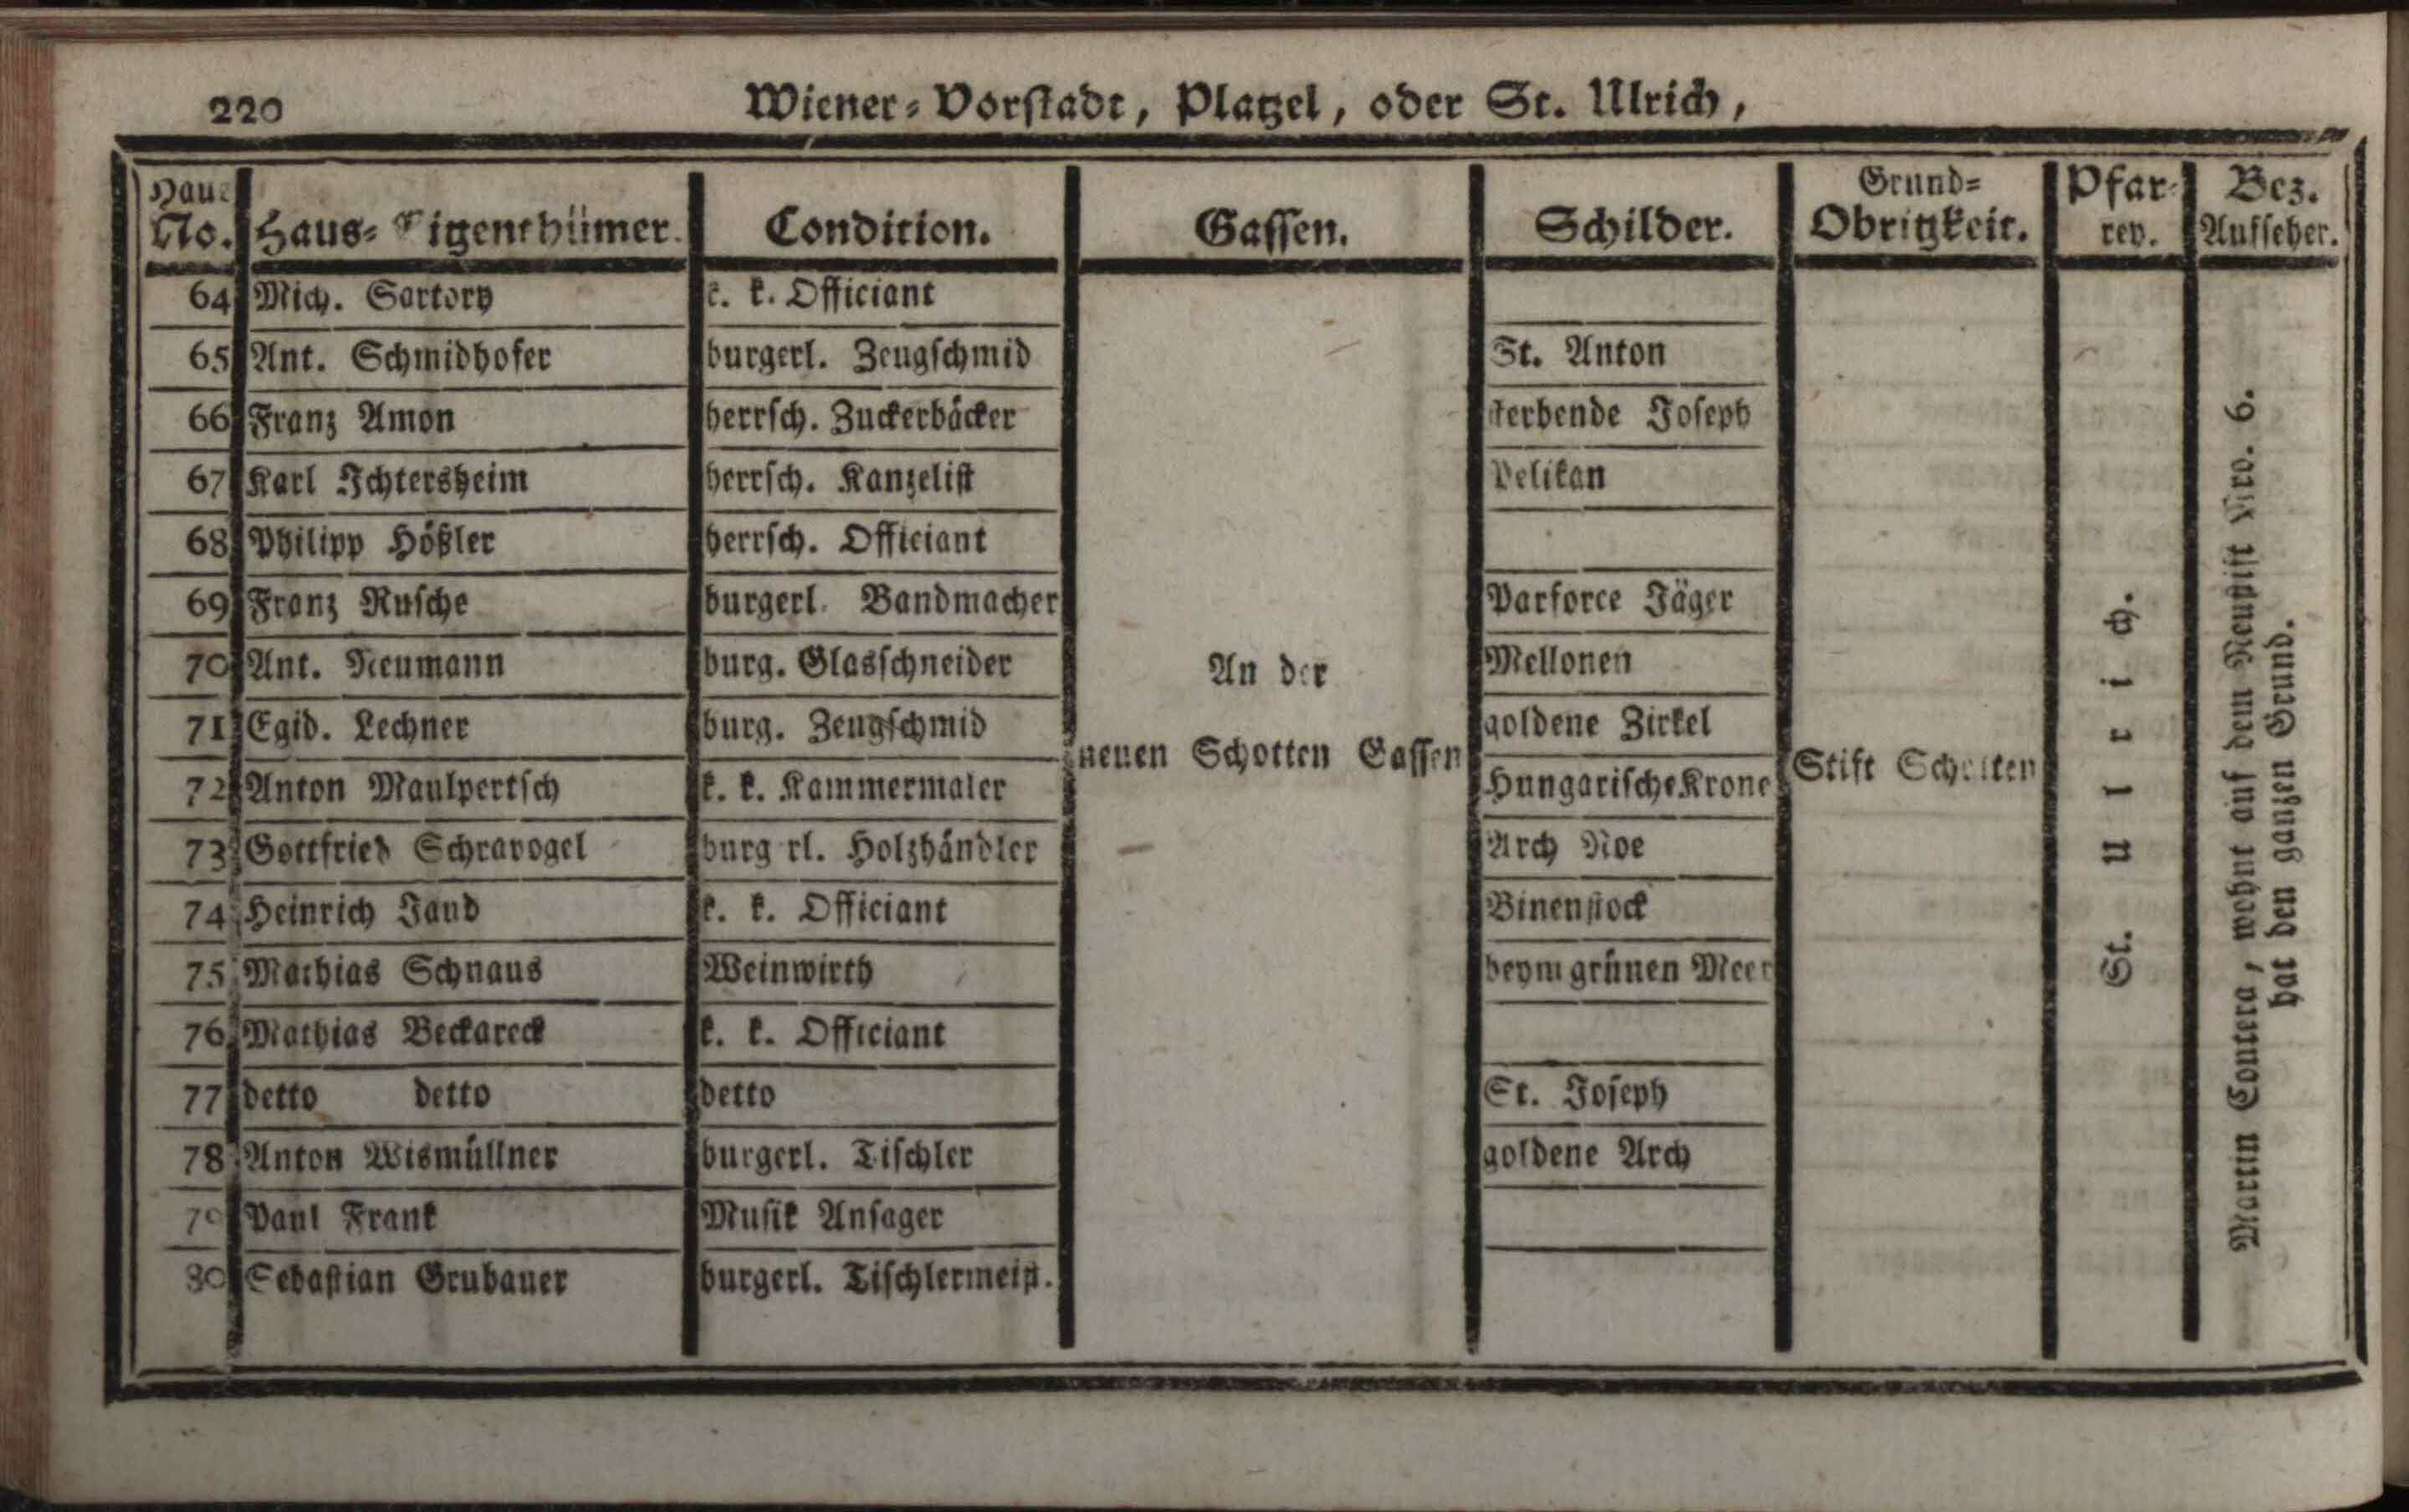 220
Wiener-Vorstadt, Platzel, oder St. Ulrich,
Haus No. Haus-Eigenthümer. Condition. Gassen. Schilder. Grund-Obrigkeit. Pfarrey. Bez. Aufseher.
64 Mich. Sartory k. k. Officiant
65 Ant. Schmidhofer burgerl. Zeugschmid St. Anton
66 Franz Amon herrsch. Zuckerbäcker sterbende Joseph
67 Karl Ichtersheim herrsch. Kanzelist Pelikan
68 Philipp Hößler herrsch. Officiant
69 Franz Rusche burgerl. Bandmacher Parforce Jäger
70 Ant. Neumann burg. Glasschneider Mellonen
71 Egid. Lechner burg. Zeugschmid goldene Zirkel
72 Anton Maulpertsch k. k. Kammermaler Hungarische Krone
73 Gottfried Schravogel burgerl. Holzhändler Arch Noe
74 Heinrich Jaud k. k. Officiant Binenstock
75 Mathias Schnaus Weinwirth beym grünen Meer
76 Mathias Beckareck k. k. Officiant
77 detto detto detto St. Joseph
78 Anton Wismüllner burgerl. Tischler goldene Arch
79 Paul Frank Musik Ansager
80 Sebastian Grubauer burgerl. Tischlermeist.
An der
neuen Schotten Gassen
Stift Schotten
St. Ulrich.
Martin Contera, wohnt auf dem Neustift Nro. 6.
hat den ganzen Grund.